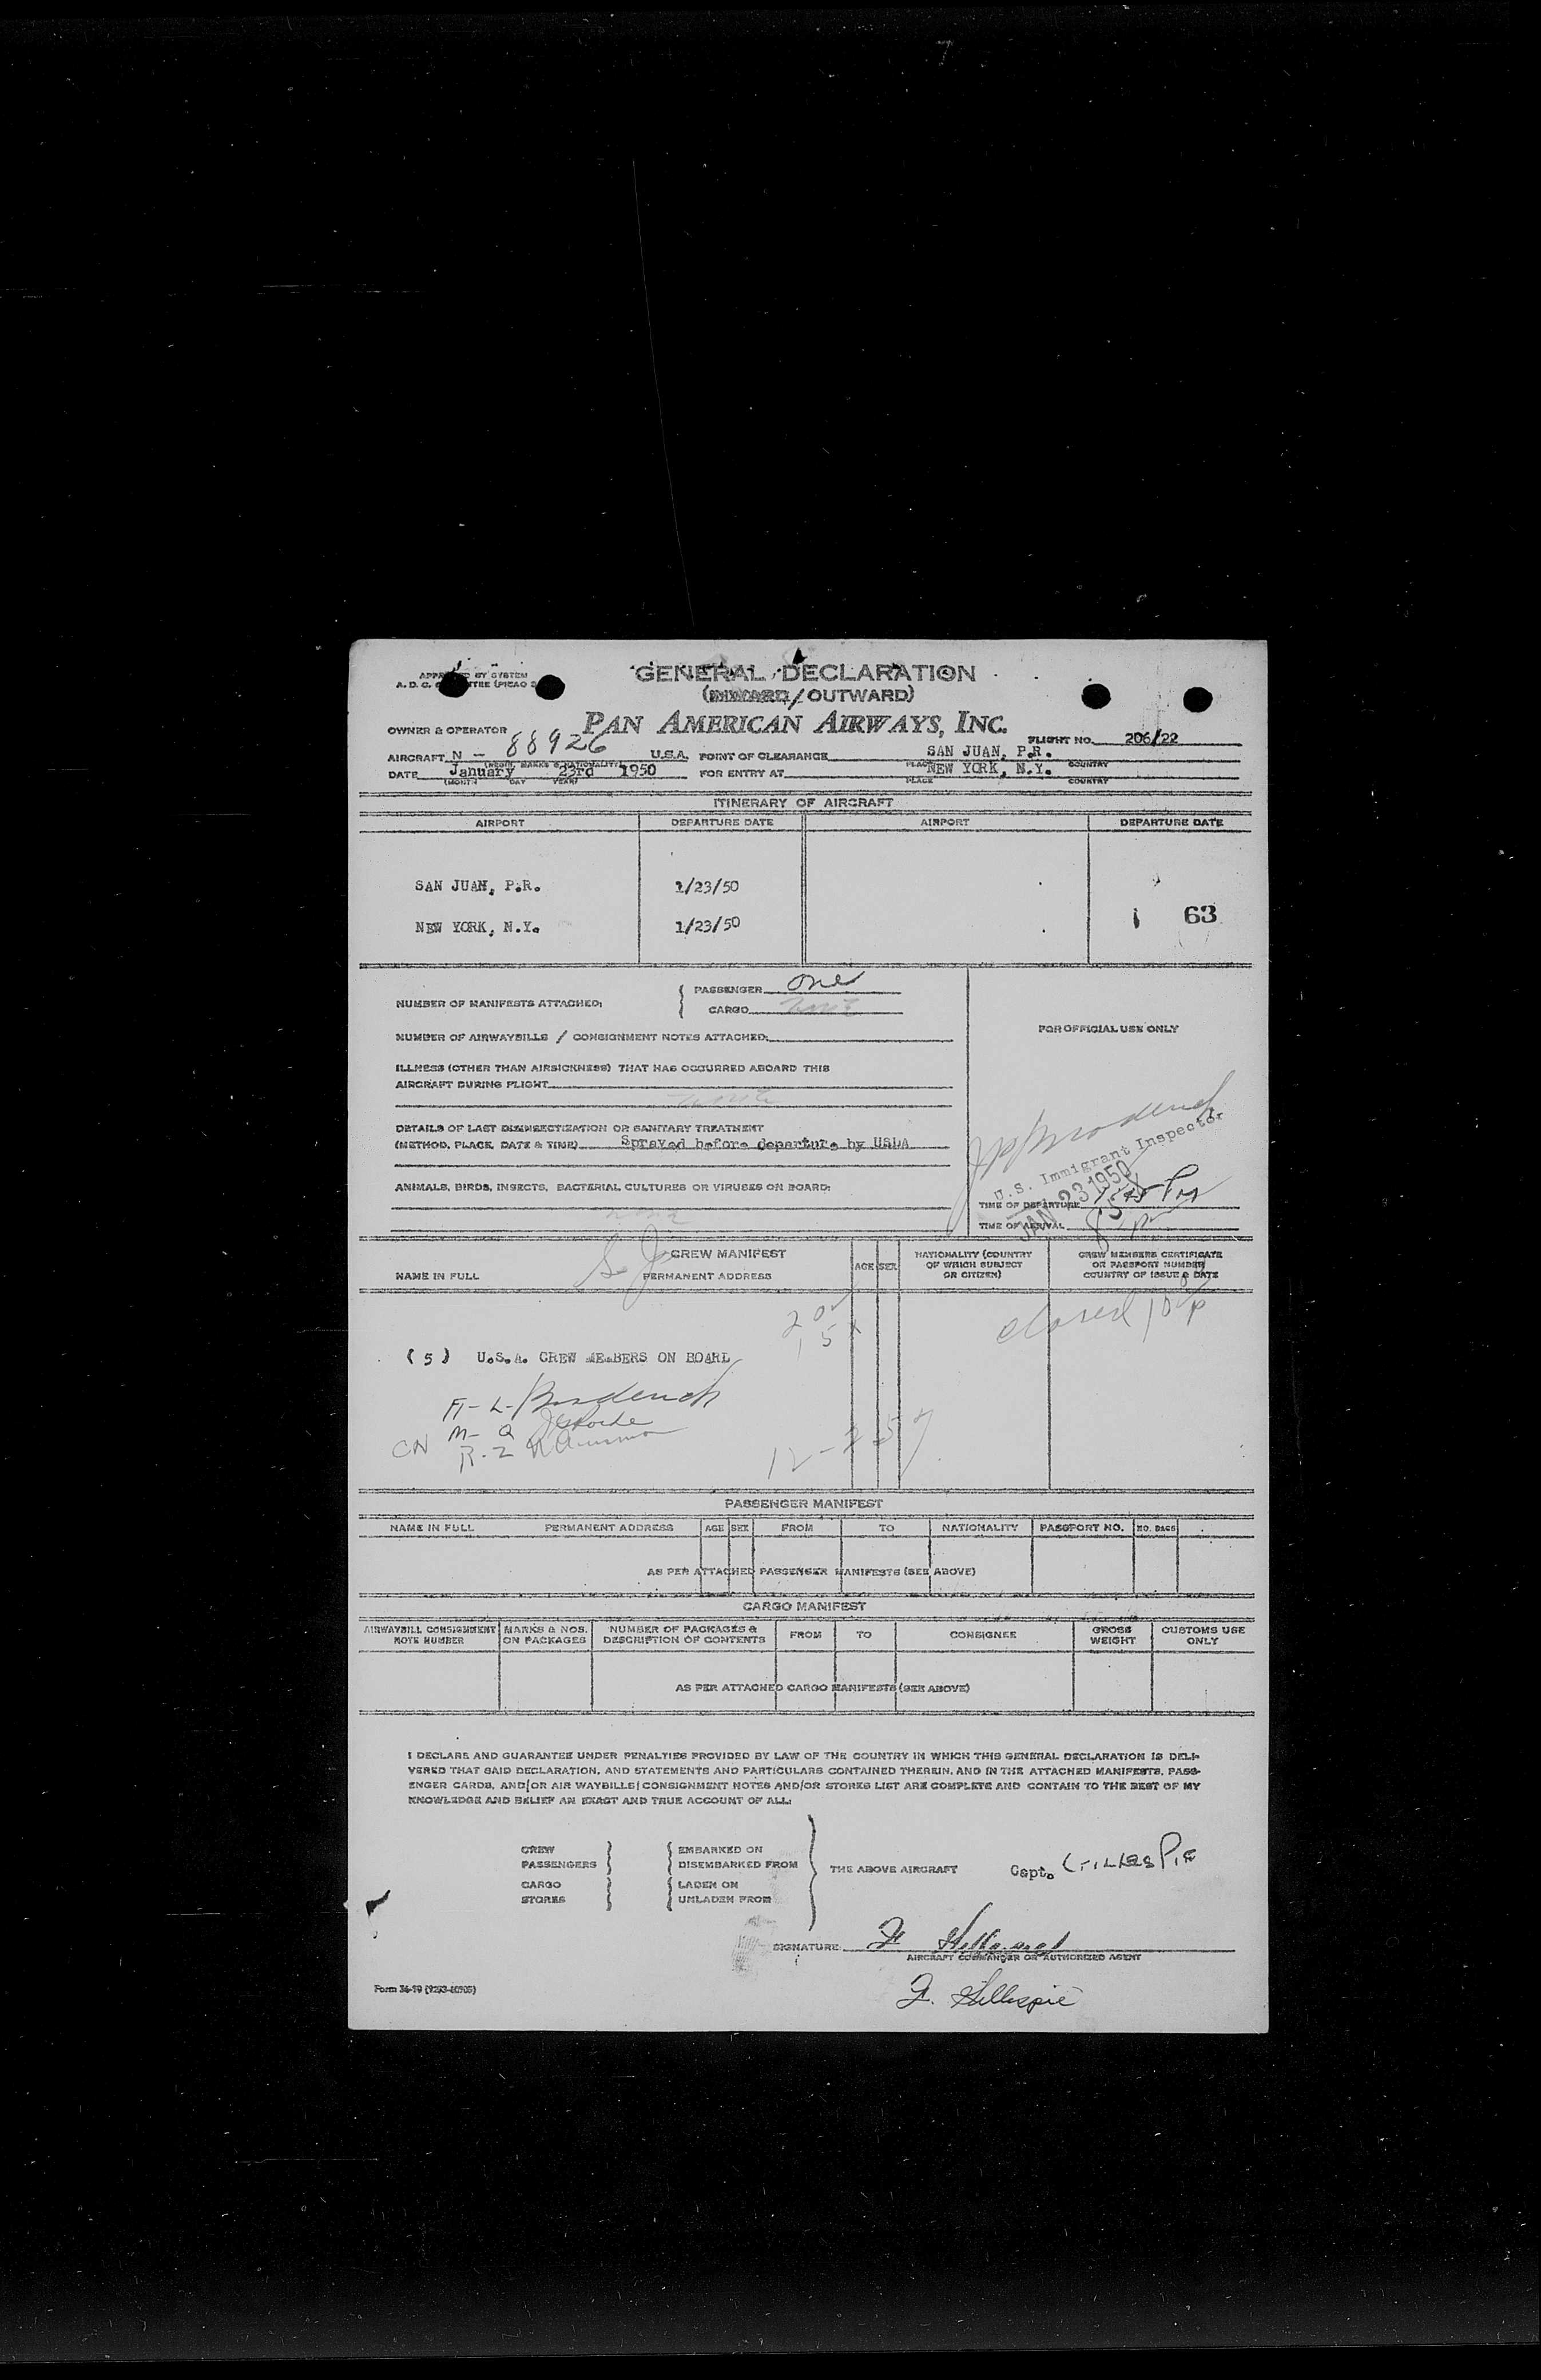 GENERAL DECLARATION
(INWARD/OUTWARD)
PAN AMERICAN AIRWAYS, INC.
OWNER & OPERATOR
FLIGHT NO. 206/22
AIRCRAFT N - 88926 U.S.A. POINT OF CLEARANCE SAN JUAN, P.R.
(REGIS. MARKS & NATIONALITY) PLACE COUNTRY
DATE January 23rd 1950 FOR ENTRY AT NEW YORK, N.Y.
(MONTH DAY YEAR) PLACE COUNTRY
ITINERARY OF AIRCRAFT
AIRPORT DEPARTURE DATE AIRPORT DEPARTURE DATE
SAN JUAN, P.R. 1/23/50
NEW YORK, N.Y. 1/23/50
63
NUMBER OF MANIFESTS ATTACHED: PASSENGER one
CARGO none
FOR OFFICIAL USE ONLY
NUMBER OF AIRWAYBILLS / CONSIGNMENT NOTES ATTACHED:
ILLNESS (OTHER THAN AIRSICKNESS) THAT HAS OCCURRED ABOARD THIS
AIRCRAFT DURING FLIGHT
none
DETAILS OF LAST DISINSECTIZATION OR SANITARY TREATMENT
(METHOD, PLACE, DATE & TIME) Sprayed before departure by USDA
ANIMALS, BIRDS, INSECTS, BACTERIAL CULTURES OR VIRUSES ON BOARD:
none
U.S. Immigrant Inspector.
JAN 23 1950
TIME OF DEPARTURE
TIME OF ARRIVAL
S. J.
CREW MANIFEST
NAME IN FULL PERMANENT ADDRESS AGE SEX NATIONALITY (COUNTRY OF WHICH SUBJECT OR CITIZEN) CREW MEMBERS CERTIFICATE OR PASSPORT NUMBER COUNTRY OF ISSUE & DATE
closed
(5) U.S.A. CREW MEMBERS ON BOARD
PASSENGER MANIFEST
NAME IN FULL PERMANENT ADDRESS AGE SEX FROM TO NATIONALITY PASSPORT NO. NO. BAGS
AS PER ATTACHED PASSENGER MANIFESTS (SEE ABOVE)
CARGO MANIFEST
AIRWAYBILL CONSIGNMENT NOTE NUMBER MARKS & NOS. ON PACKAGES NUMBER OF PACKAGES & DESCRIPTION OF CONTENTS FROM TO CONSIGNEE GROSS WEIGHT CUSTOMS USE ONLY
AS PER ATTACHED CARGO MANIFESTS (SEE ABOVE)
I DECLARE AND GUARANTEE UNDER PENALTIES PROVIDED BY LAW OF THE COUNTRY IN WHICH THIS GENERAL DECLARATION IS DELI-
VERED THAT SAID DECLARATION, AND STATEMENTS AND PARTICULARS CONTAINED THEREIN, AND IN THE ATTACHED MANIFESTS, PASS-
ENGER CARDS, AND/OR AIR WAYBILLS/CONSIGNMENT NOTES AND/OR STORES LIST ARE COMPLETE AND CONTAIN TO THE BEST OF MY
KNOWLEDGE AND BELIEF AN EXACT AND TRUE ACCOUNT OF ALL:
CREW EMBARKED ON
PASSENGERS DISEMBARKED FROM THE ABOVE AIRCRAFT Capt. GILLESPIE
CARGO LADEN ON
STORES UNLADEN FROM
SIGNATURE:
AIRCRAFT COMMANDER OR AUTHORIZED AGENT
F. Gillespie